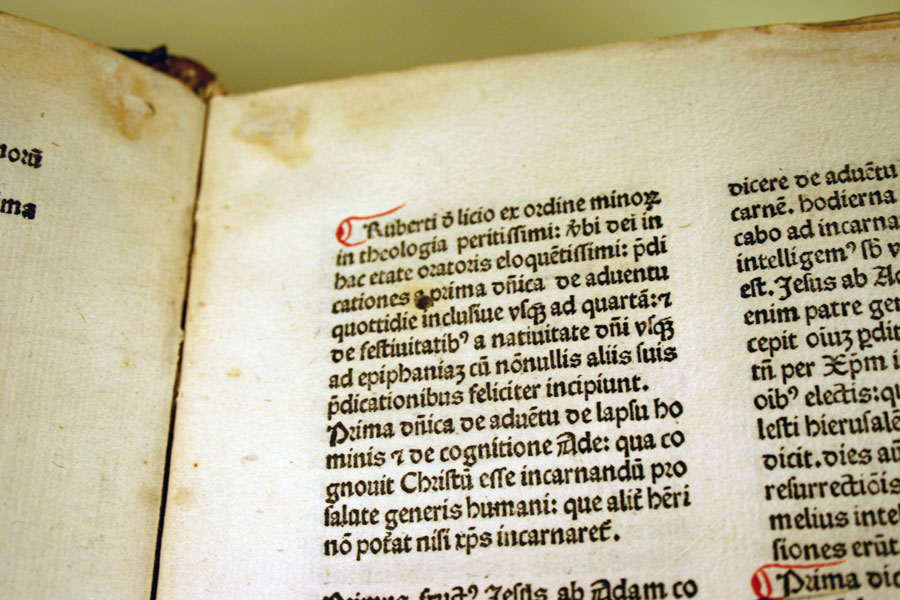 norū
ima
Ruberti ō licio ex ordine minorꝝ
in theologia peritissimi: v̄bi dei in
hac etate oratoris eloquētissimi: p̄di
cationes a prima dn̄ica de aduentu
quottidie inclusiue vsqꝫ ad quartā: ⁊
de festiuitatibꝰ a natiuitate dn̄i vsqꝫ
ad epiphaniaꝫ cū nōnullis aliis suis
p̄dicationibus feliciter incipiunt.
Prima dn̄ica de aduētu de lapsu ho
minis ⁊ de cognitione Ade: qua co
gnouit Christū esse incarnandū pro
salute generis humani: que alit̄ hēri
nō pot̄at nisi xp̄s incarnaret̄.
Jesus ab Adam co
dicere de aduētu
carnē. hodierna
cabo ad incarna
intelligemꝰ sb̄ v
est. Jesus ab Ad
enim patre gen
cepit oīuꝫ ꝑdit
tn̄ per Xp̄m i
oibꝰ electis: qu
lesti hierusalē
dicit. dies au
resurrectiōis
melius intel
siones erūt
Prima dic